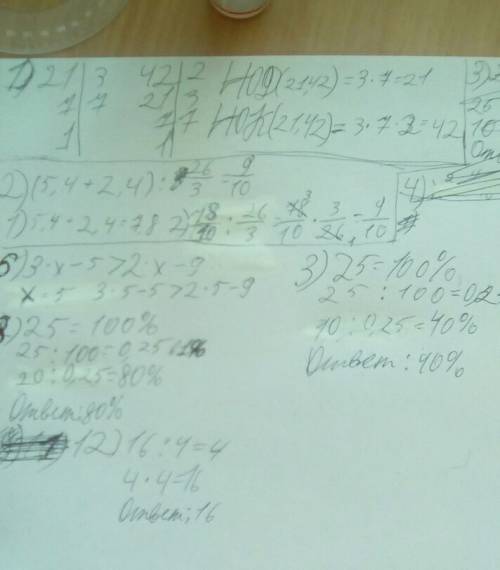 1) 21 | 3 42 | 2 НОД(21,42)=3·7=21
7 | 7 21 | 3
1 | 7 | 7 НОК(21,42)=3·7·2=42
1
3)
25
10
2) (5,4+2,4): 26/3 = 9/10
1) 5,4+2,4=7,8 2) 78/10 : 26/3 = 78/10 · 3/26 = 9/10
4)
6) 3·x-5>2·x-9
x=5 3·5-5>2·5-9
3) 25=100%
25:100=0,25
10:0,25=40%
Ответ: 40%
8) 25=100%
25:100=0,25
20:0,25=80%
Ответ: 80%
12) 16:4=4
4·4=16
Ответ: 16